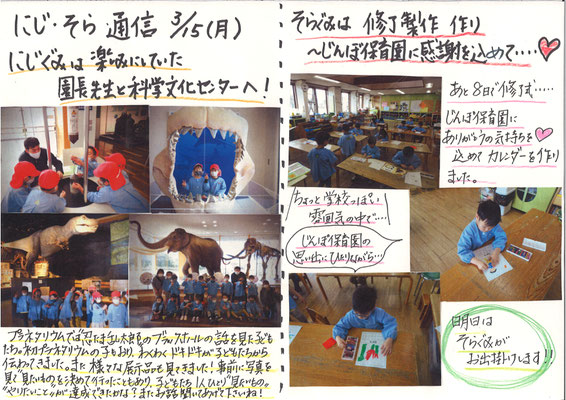 にじ・そら 通信 3/15(月)
にじぐみは 楽しみにしていた
園長先生と科学文化センターへ!
プラネタリウムでは"忍たま乱太郎"のブラックホールの話を見た子ども
たち。初プラネタリウムの子もおり、わくわくドキドキが子どもたちから
伝わってきました。また様々な展示品も見てきました!事前に写真を
見て"見たいもの"を決めて行ったこともあり、子どもたち1人ひとり"見たいもの。
"やりたいこと"が達成できたかな?またお話聞いてあげて下さいね!
そらぐみは 修了製作 作り
〜じんぼ保育園に感謝を込めて・・・・
あと8日で修了式・・・・・
じんぼ保育園に
ありがとうの気持ちを
込めて カレンダーを作り
ました。
ちょっと学校っぽい
雰囲気の中で・・・
じんぼ保育園の
思い出にひたりながら・・・
明日は
そらぐみが
お出掛けします!!